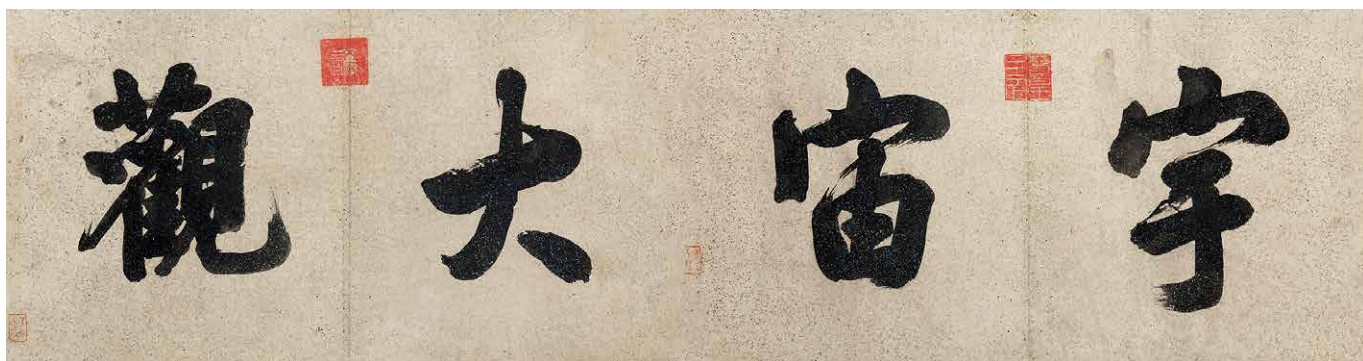 宇宙大觀